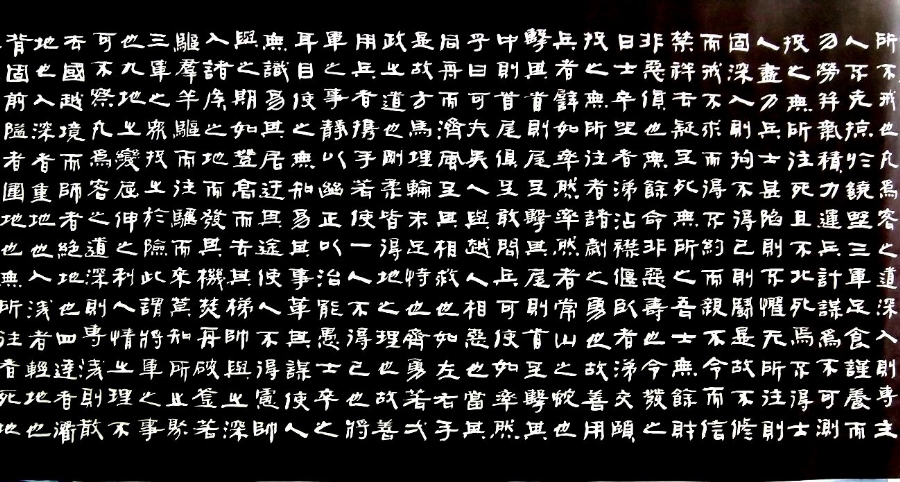 所不戒也凡爲客之道深入則專主
人不克掠於饒野三軍足食謹養而
勿勞并氣積力運兵計謀爲不可測
投之無所往死且不北死焉不得士
人盡力兵士甚陷則不懼无所往則
固深入則拘不得已則鬭是故不修
而戒不求而得不約而親不令而信
禁祥去疑至死無所之吾士無餘財
非惡貨也無餘命非惡壽也令發之
日士卒坐者涕沾襟偃臥者涕交頤
投之無所往者諸劌之勇也故善用
兵者辟如率然率然者常山之蛇也
擊其首則尾至擊其尾則首至擊其
中則首尾俱至敢問兵可使如率然
乎曰可夫吳人與越人相惡也當其
同舟而濟風至其相救也如左右手
是故方馬埋輪未足恃也齊勇若弌
政之道也剛柔皆得地之理也故善
用兵者攜手若使一人不得已也將
軍之事靜以幽正以治能愚士卒之
耳目使之無知易其事革其謀使人
無識易其居迂其途使人不得慮帥
與之期如登高而去其梯帥與之深
入諸侯之地而發其機焚舟破釜若
驅羣羊驅而往驅而來莫知所之聚
三軍之衆投之於險此謂將軍之事
也九地之變屈伸之利人情之理不
可不察凡爲客之道深則專淺則散
去國越境而師者絕地也四達者衢
地也入深者重地也入淺者輕地也
背固前隘者圍地也無所往者死地